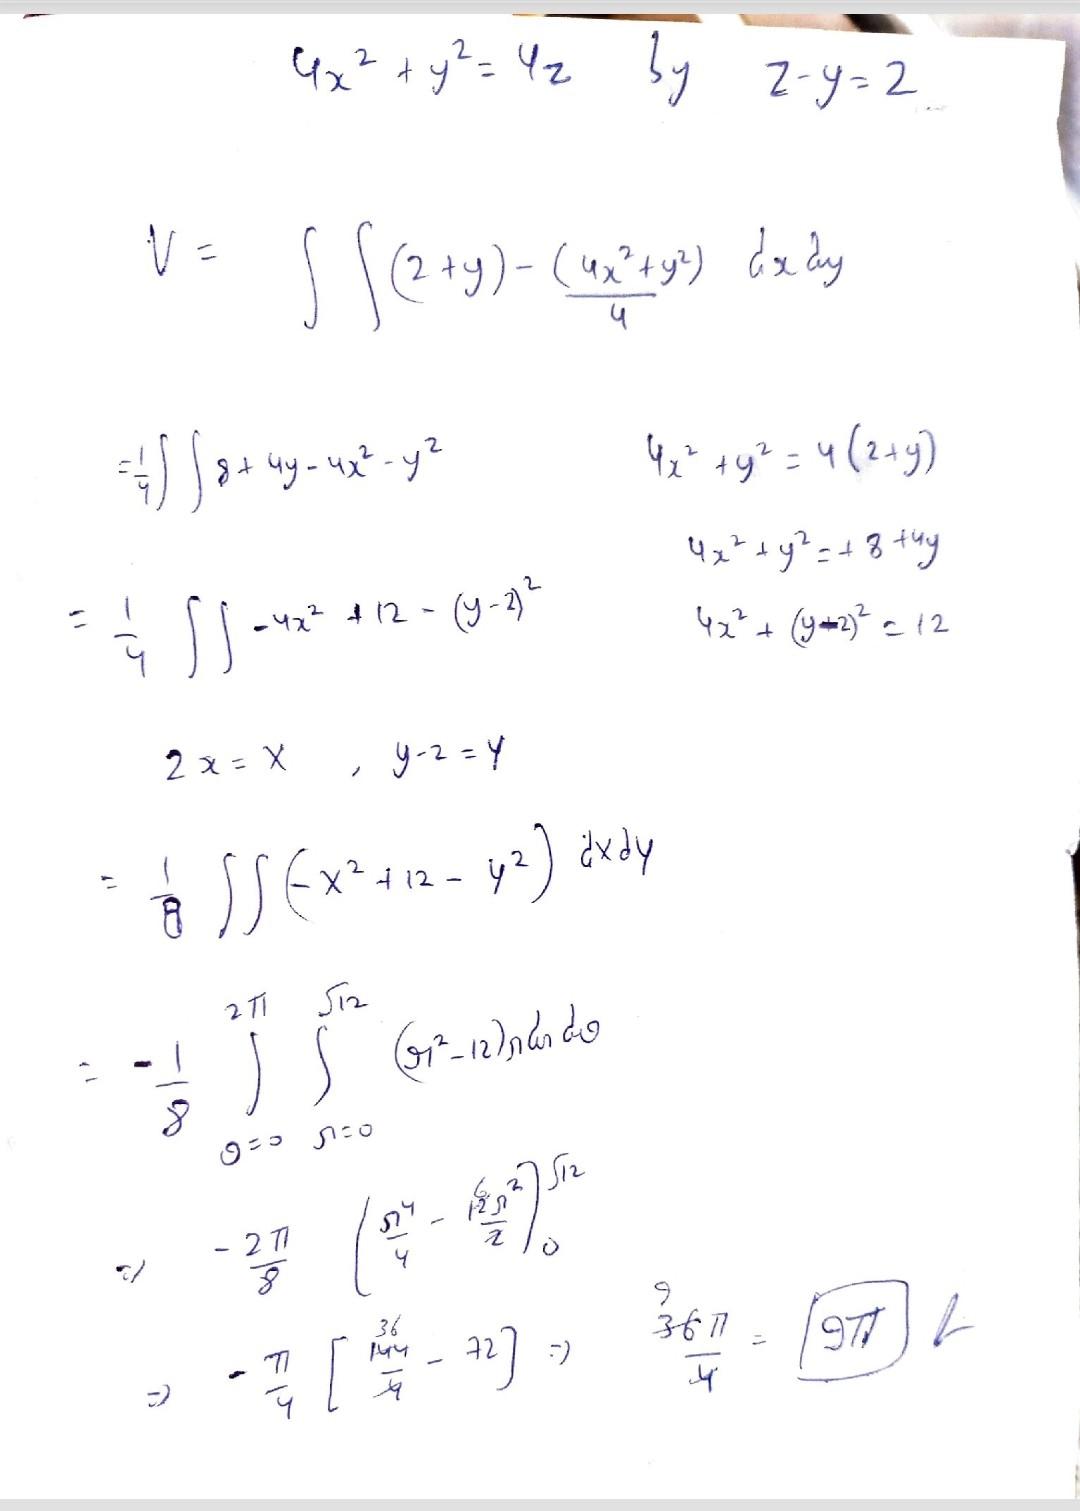 4x² + y² = 4z by z-y=2
V = ∫ ∫ (2+y) - (4x²+y²)/4 dx dy
= 1/4 ∫ ∫ 8 + 4y - 4x² - y²
4x² + y² = 4(2+y)
4x² + y² = +8 +4y
= 1/4 ∫∫ -4x² + 12 - (y-2)²
4x² + (y-2)² = 12
2x = X , y-2 = Y
= 1/8 ∫∫ (-x² + 12 - y²) dxdy
= -1/8 ∫_{θ=0}^{2π} ∫_{r=0}^{√12} (r²-12) r dr dθ
=) -2π/8 (r⁴/4 - 12r²/2 6)_0^{√12}
=) -π/4 [144/4 36 - 72] =) 36π/4 9 = 9π